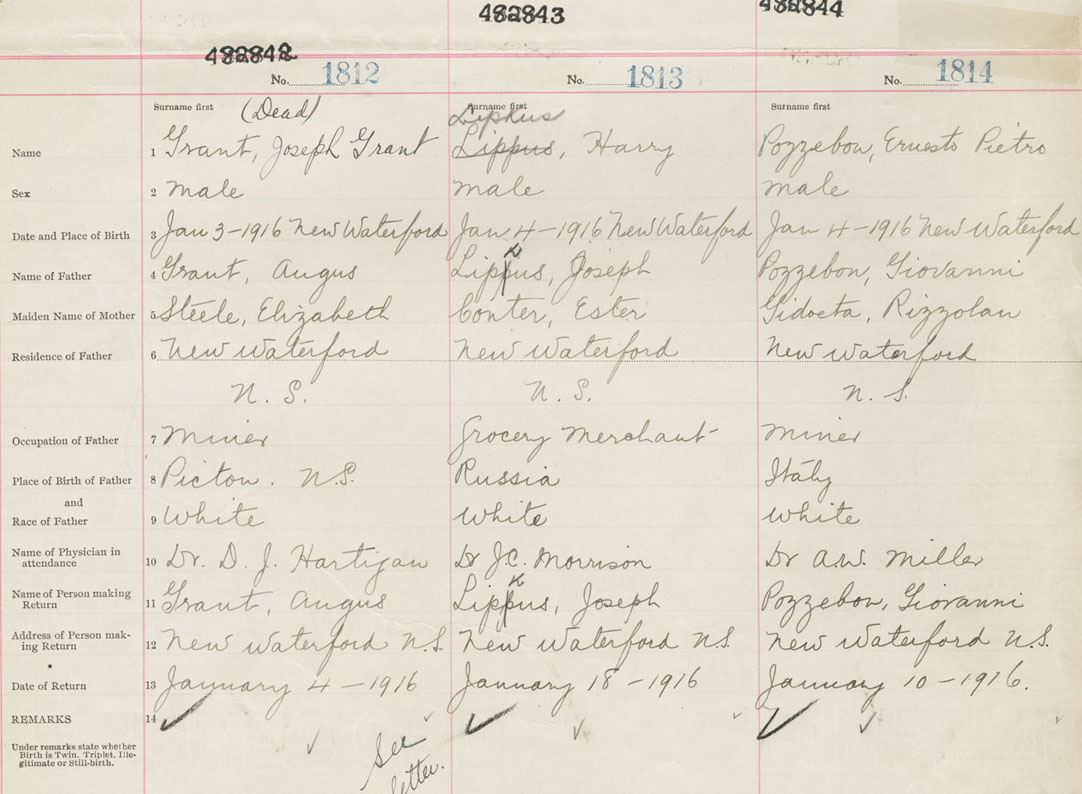 482843
482844
482842
No. 1812 No. 1813 No. 1814
Surname first (Dead) Surname first Surname first
Lipkus
Name 1 Grant, Joseph Grant Lippus, Harry Pozzebon, Ernesto Pietro
Sex 2 male male male
Date and Place of Birth 3 Jan 3-1916 New Waterford Jan 4-1916 New Waterford Jan 4-1916 New Waterford
Name of Father 4 Grant, Angus Lipkus, Joseph Pozzebon, Giovanni
Maiden Name of Mother 5 Steele, Elizabeth Conter, Ester Rizzolan
Residence of Father 6 New Waterford New Waterford New Waterford
N. S. N. S. N. S.
Occupation of Father 7 Miner Grocery Merchant Miner
Place of Birth of Father 8 Picton. N.S. Russia Italy
and
Race of Father 9 White White White
Name of Physician in
attendance 10 Dr. D. J. Hartigan Dr J.C. Morrison Dr A.W. Miller
Name of Person making
Return 11 Grant, Angus Lipkus, Joseph Pozzebon, Giovanni
Address of Person mak-
ing Return 12 New Waterford N.S. New Waterford N.S. New Waterford N.S.
Date of Return 13 January 4-1916 January 18-1916 January 10-1916.
REMARKS 14
Under remarks state whether
Birth is Twin, Triplet, Ille-
gitimate or Still-birth.
See
letter.